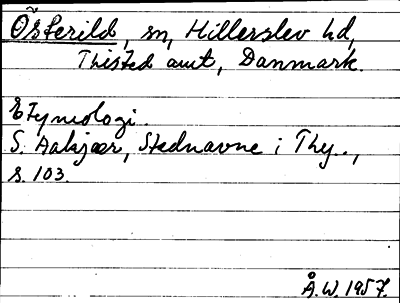 Österild, sn, Hillerslev hd,
Thisted amt, Danmark.
Etymologi.
S. Aakjær, Stednavne i Thy..,
s. 103.
Å.W. 1957.